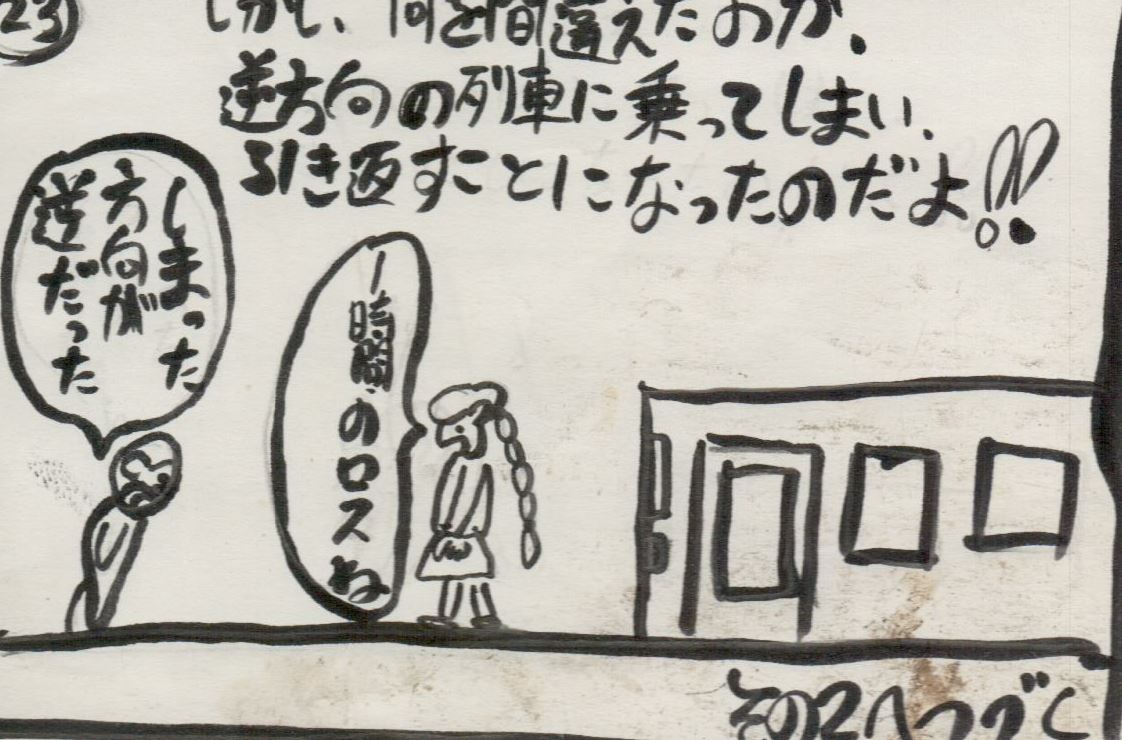 23
しかし、何を間違えたのか、
逆方向の列車に乗ってしまい、
引き返すことになったのだよ!!
しまった
方向が
逆だった
一時間のロスね
その2へつづく